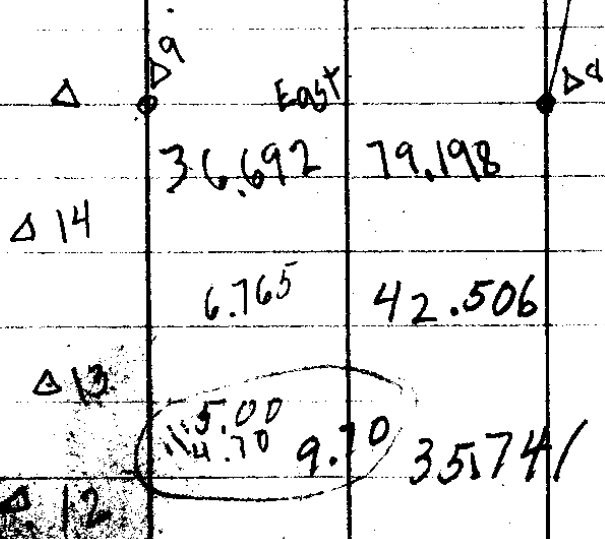 Δ9
Δ East Δ8
36.692 79.198
Δ 14
6.765 42.506
Δ 13
5.00
4.70 9.70 35.741
Δ 12